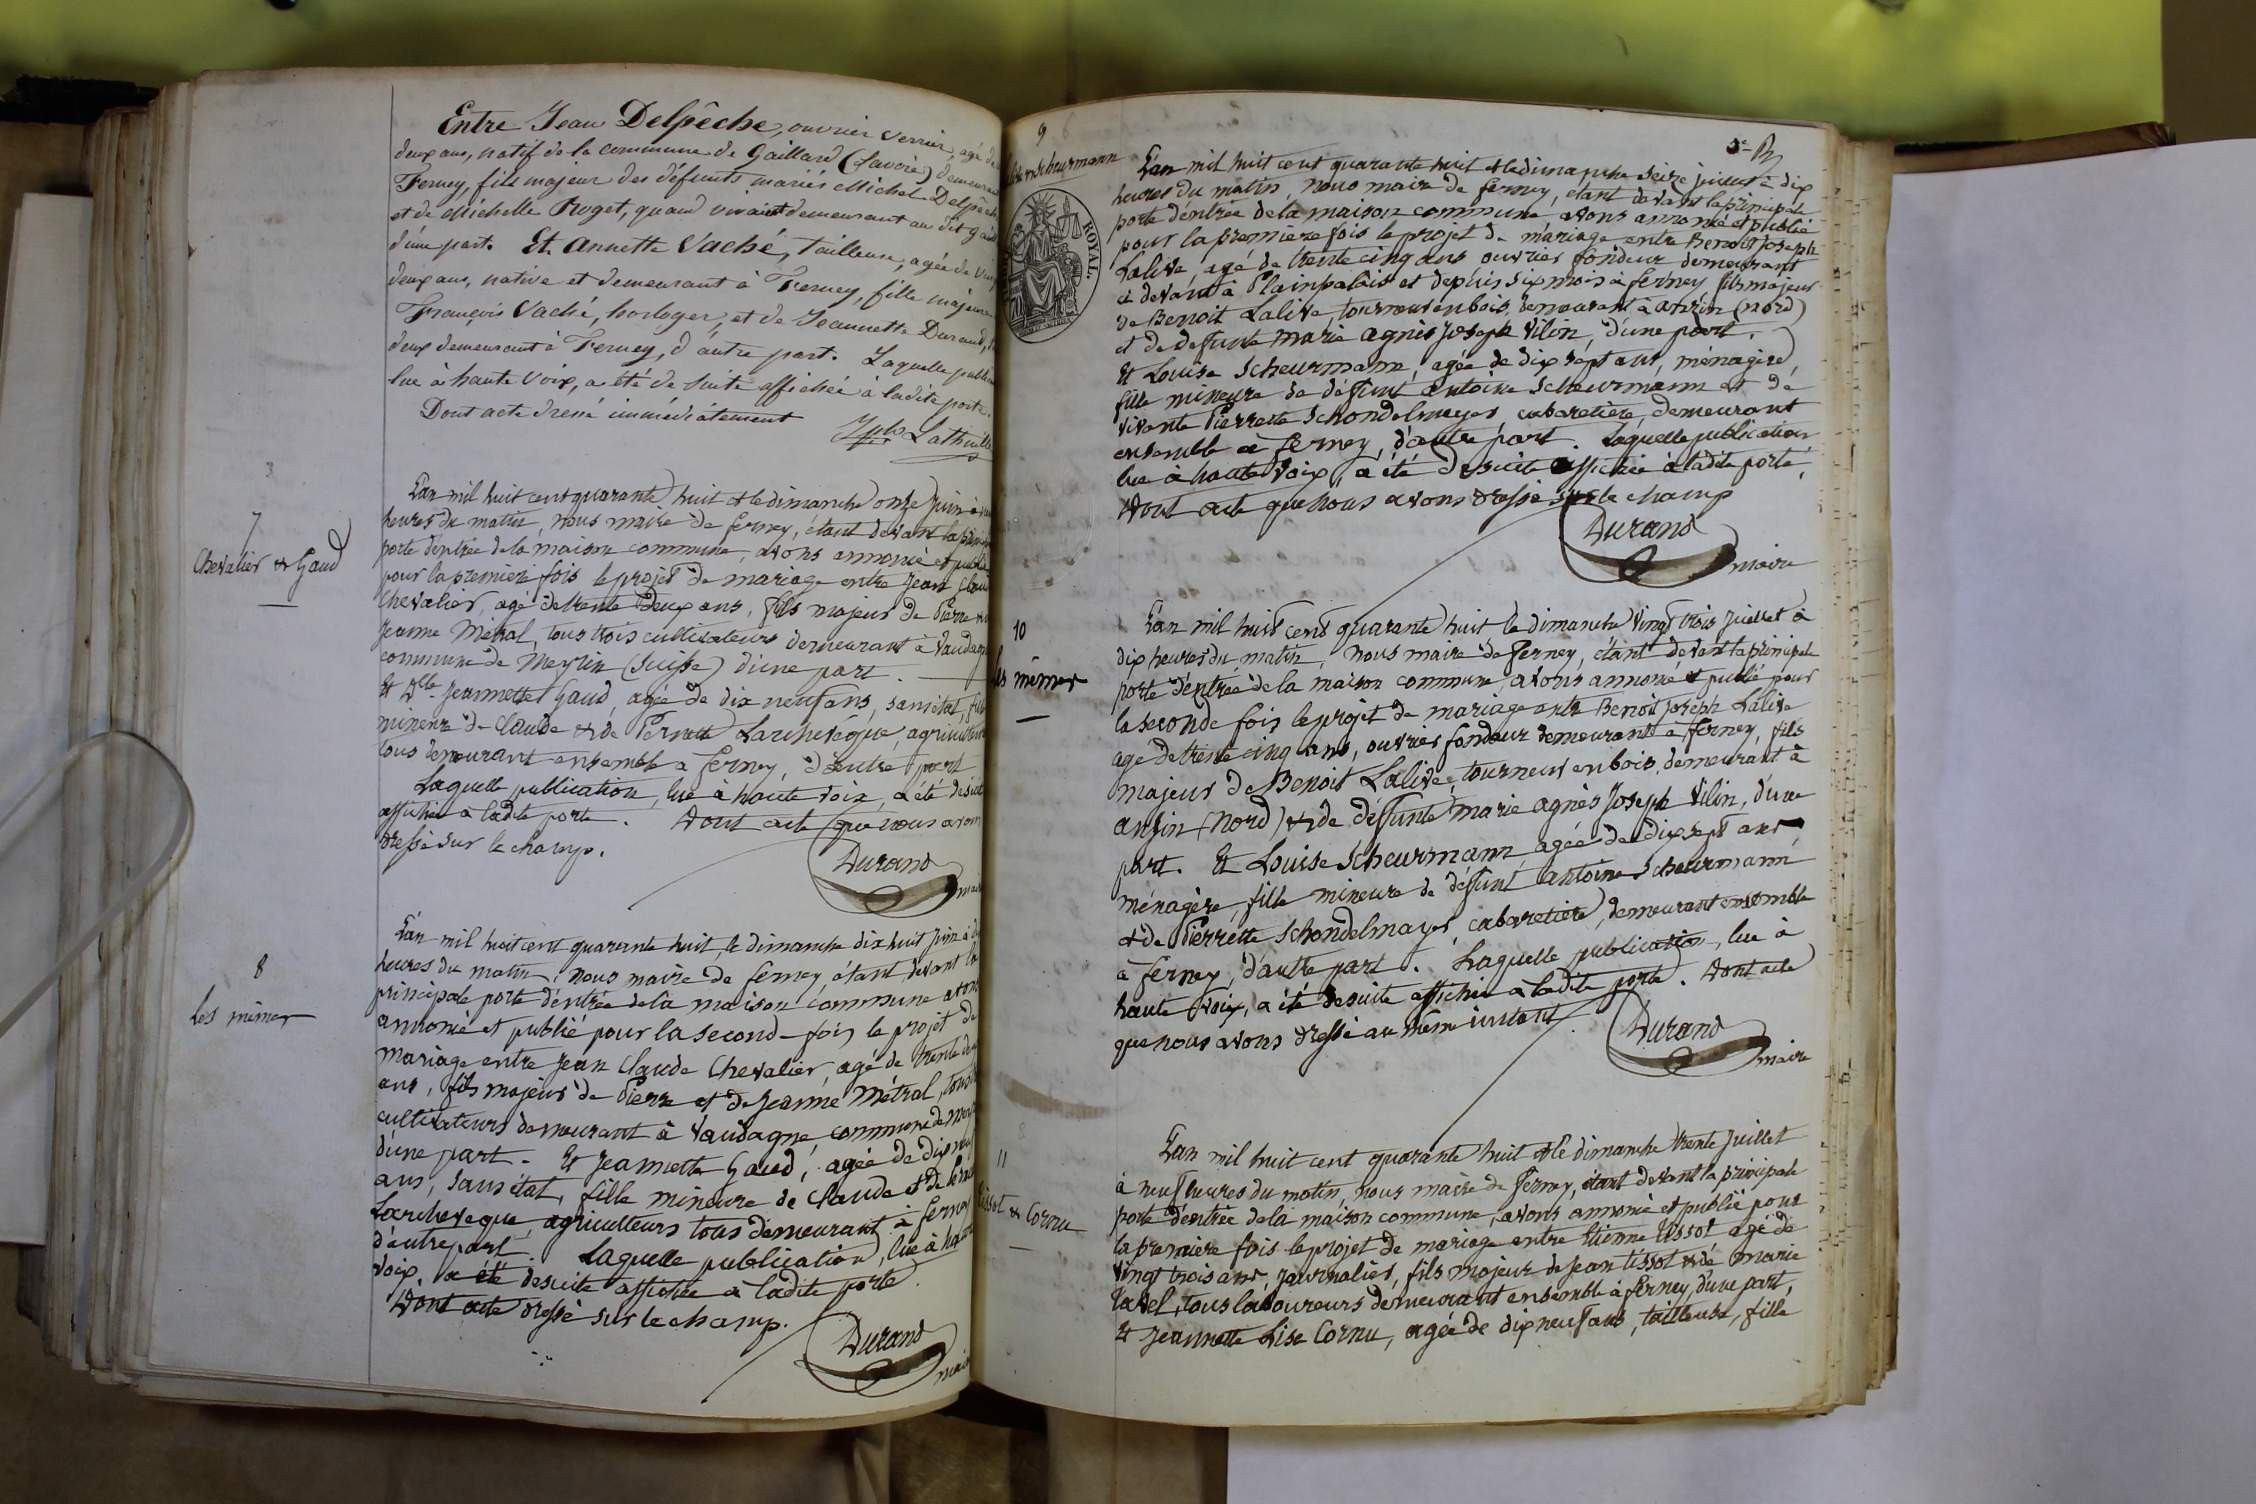 Entre Jean Delpêche, ouvrier verrier, agé de
deux ans, natif de la commune de Gaillard (Savoie) demeurant
Ferney, fils majeur des défunts mariés Michel Delpêche
et de Michelle Roget, quand vivaient demeurant au dit Gaill
d'une part. Et Annette Vaché, Tailleuse, agée de vingt
deux ans, native et demeurant à Ferney, fille majeure
François Vaché, horloger, et de Jeannette Durand,
deux demeurant à Ferney, d'autre part. Laquelle public
lue à haute voix, a été de suite affichée à ladite porte.
Dont acte dressé immédiatement
Lathuille
7
Chevalier et Gaud
L'an mil huit cent quarante huit et le dimanche onze Juin à
heures du matin, nous maire de ferney, étant devant la prin
porte d'entrée de la maison commune, avons annoncé et publié
pour la première fois le projet de mariage entre Jean Clau
Chevalier, agé de trente deux ans, fils majeur de Pierre et
Jeanne Métral, tous trois cultivateurs demeurant à Vaudagn
commune de Meyrin (Suisse) d'une part.
Et Dlle Jeannette Gaud, agée de dix neuf ans, sans état, fille
mineure de Claude et de Pernette Larchevêque, agriculteur
tous demeurant ensemble à ferney, d'autre part
Laquelle publication, lue à haute voix, a été de suite
affichée à ladite porte. Dont acte que nous avons
dressé sur le champ.
Durand
mai
8
Les mêmes
L'an mil huit cent quarante huit, le dimanche dix huit Juin à
heures du matin, nous maire de ferney, étant devant la
principale porte d'entrée de la maison commune avons
annoncé et publié pour la second fois le projet de
mariage entre Jean Claude Chevalier, agé de trente deux
ans, fils majeur de Pierre et de Jeanne Métral, tous
cultivateurs demeurant à Vaudagne commune de Mey
d'une part. Et Jeannette Gaud, agée de dix neuf
ans, sans état, fille mineure de Claude et de
Larcheveque, agriculteurs tous demeurant à ferney
d'autre part. Laquelle publication, lue à haute
voix, a été de suite affichée à ladite porte.
Dont acte dressé sur le champ.
Durand
mai
9
Scheurmann
ROYAL
L'an mil huit cent quarante huit et le dimanche seize juillet à dix
heures du matin, nous maire de ferney, étant devant la principale
porte d'entrée de la maison commune avons annoncé et publié
pour la premiere fois le projet de mariage entre Benoit Joseph
Lalive, agé de trente cinq ans ouvrier fondeur demeurant
ci devant à Plainpalais et depuis six mois à ferney, fils majeur
de Benoit Lalive, tourneur en bois, demeurant à Anzin (Nord)
et de defunte Marie Agnès Joseph Vilin, d'une part.
Et Louise Scheurmann, agée de dix sept ans, ménagère,
fille mineure de défunt Antoine Scheurmann et de
vivante Pierrette Schondelmayer cabaretière, demeurant
ensemble à ferney, d'autre part. Laquelle publication
lue à haute voix, a été de suite affichée à ladite porte,
Dont acte que nous avons dressé sur le champ
Durand
maire
10
les mêmes
L'an mil huit cent quarante huit le dimanche vingt trois Juillet à
dix heures du matin, nous maire de ferney, étant devant la principale
porte d'entrée de la maison commune, avons annoncé et publié pour
la seconde fois le projet de mariage entre Benoit Joseph Lalive
agé de trente cinq ans, ouvrier fondeur demeurant à ferney, fils
majeur de Benoit Lalive, tourneur en bois, demeurant à
anzin (Nord) et de défunte Marie agnès Joseph Vilin, d'une
part. Et Louise Scheurmann agée de dix sept ans
ménagère, fille mineure de défunt antoine Scheurmann
et de Pierrette Schondelmayer, cabaretière, demeurant ensemble
à ferney, d'autre part. Laquelle publication, lue à
haute voix, a été de suite affichée à ladite porte. Dont acte
que nous avons dressé au même instant.
Durand
maire
11
Tissot et Cornu
L'an mil huit cent quarante huit et le dimanche trente Juillet
à neuf heures du matin, nous maire de Ferney, étant devant la principale
porte d'entrée de la maison commune, avons annoncé et publié pour
la premiere fois le projet de mariage entre Etienne Tissot agé de
vingt trois ans, Journalier, fils majeur de Jean Tissot et de Marie
Tavel, tous laboureurs demeurant ensemble à ferney, d'une part,
Et Jeannette Lise Cornu, agée de dix neuf ans, tailleuse, fille